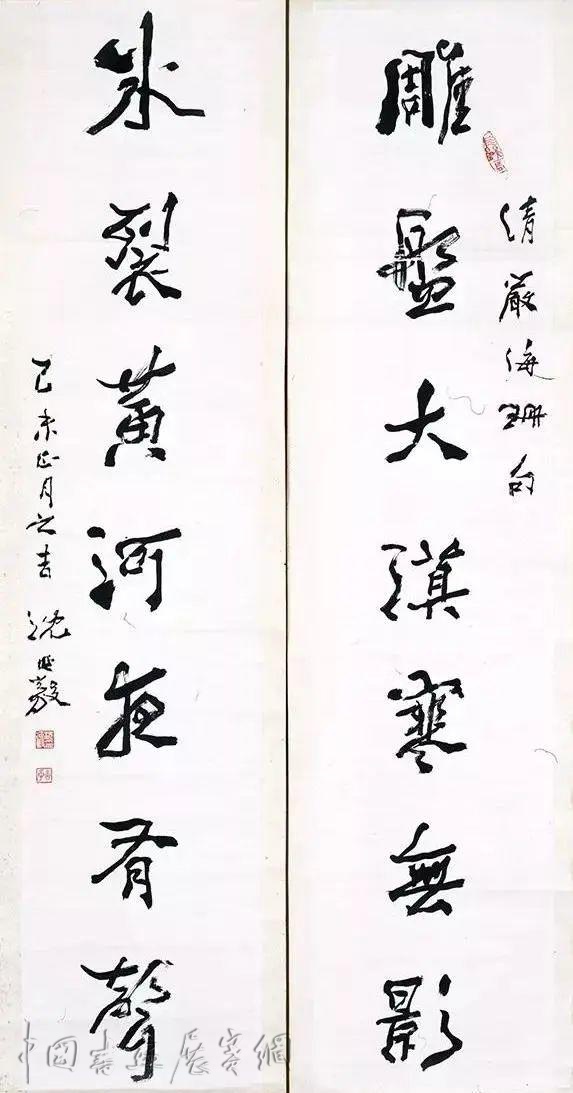 雕盤大漠寒無影
清嚴海珊句
冰裂黃河夜有聲
己未正月之吉 沈延毅
中國書畫展賽網